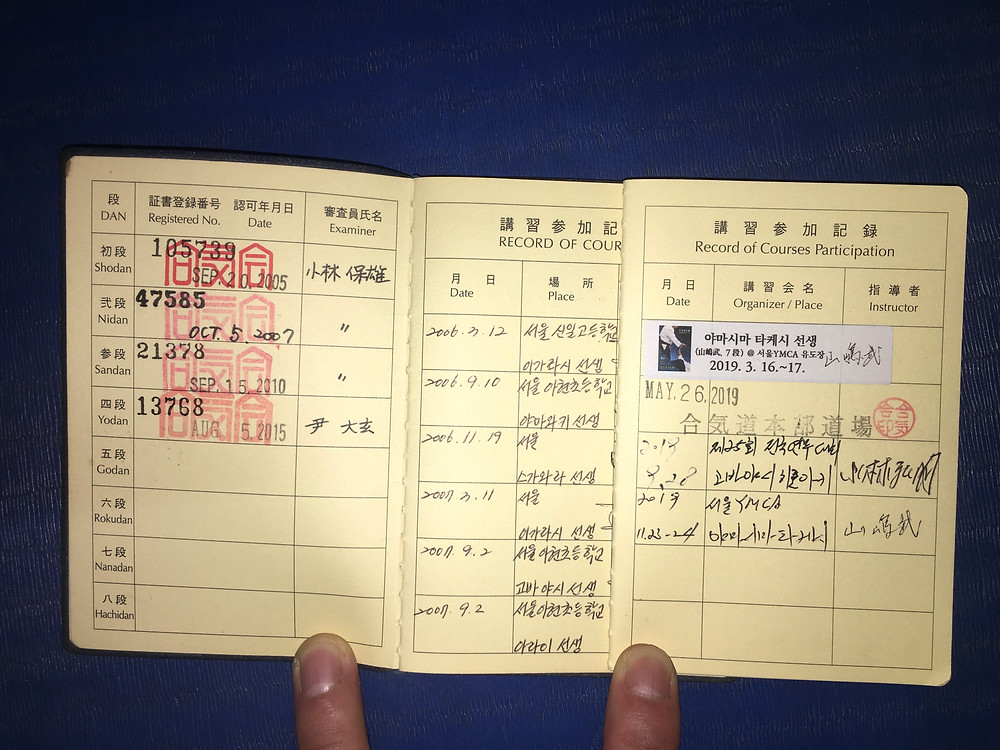 段
DAN
証書登録番号 認可年月日
Registered No. Date
審査員氏名
Examiner
初段
Shodan
105739
SEP. 20. 2005
小林 保雄
弐段
Nidan
47585
OCT. 5. 2007
〃
参段
Sandan
21378
SEP. 15. 2010
〃
四段
Yodan
13768
AUG. 5. 2015
尹 大玄
五段
Godan
六段
Rokudan
七段
Nanadan
八段
Hachidan
講習参加記
RECORD OF COUR
月 日
Date
場 所
Place
2006. 3. 12 서울 신일고등학교
이가라시 선생
2006. 9. 10 서울 아현초등학교
야마와키 선생
2006. 11. 19 서울
스가와라 선생
2007 3. 11 서울
이가라시 선생
2007. 9. 2 서울아현초등학교
고바야시 선생
2007. 9. 2 서울아현초등학교
아라이 선생
講習参加記録
Record of Courses Participation
月 日
Date
講習会名
Organizer / Place
指導者
Instructor
야마시마 타케시 선생
(山嶋武, 7段) @ 서울YMCA 유도장
2019. 3. 16.~17.
山嶋武
MAY. 26. 2019
合気道本部道場
2019 제25회 전국연무대회
고바야시 히로아키
2019 서울YMCA
11.23-24 야마시마 타케시 山嶋武